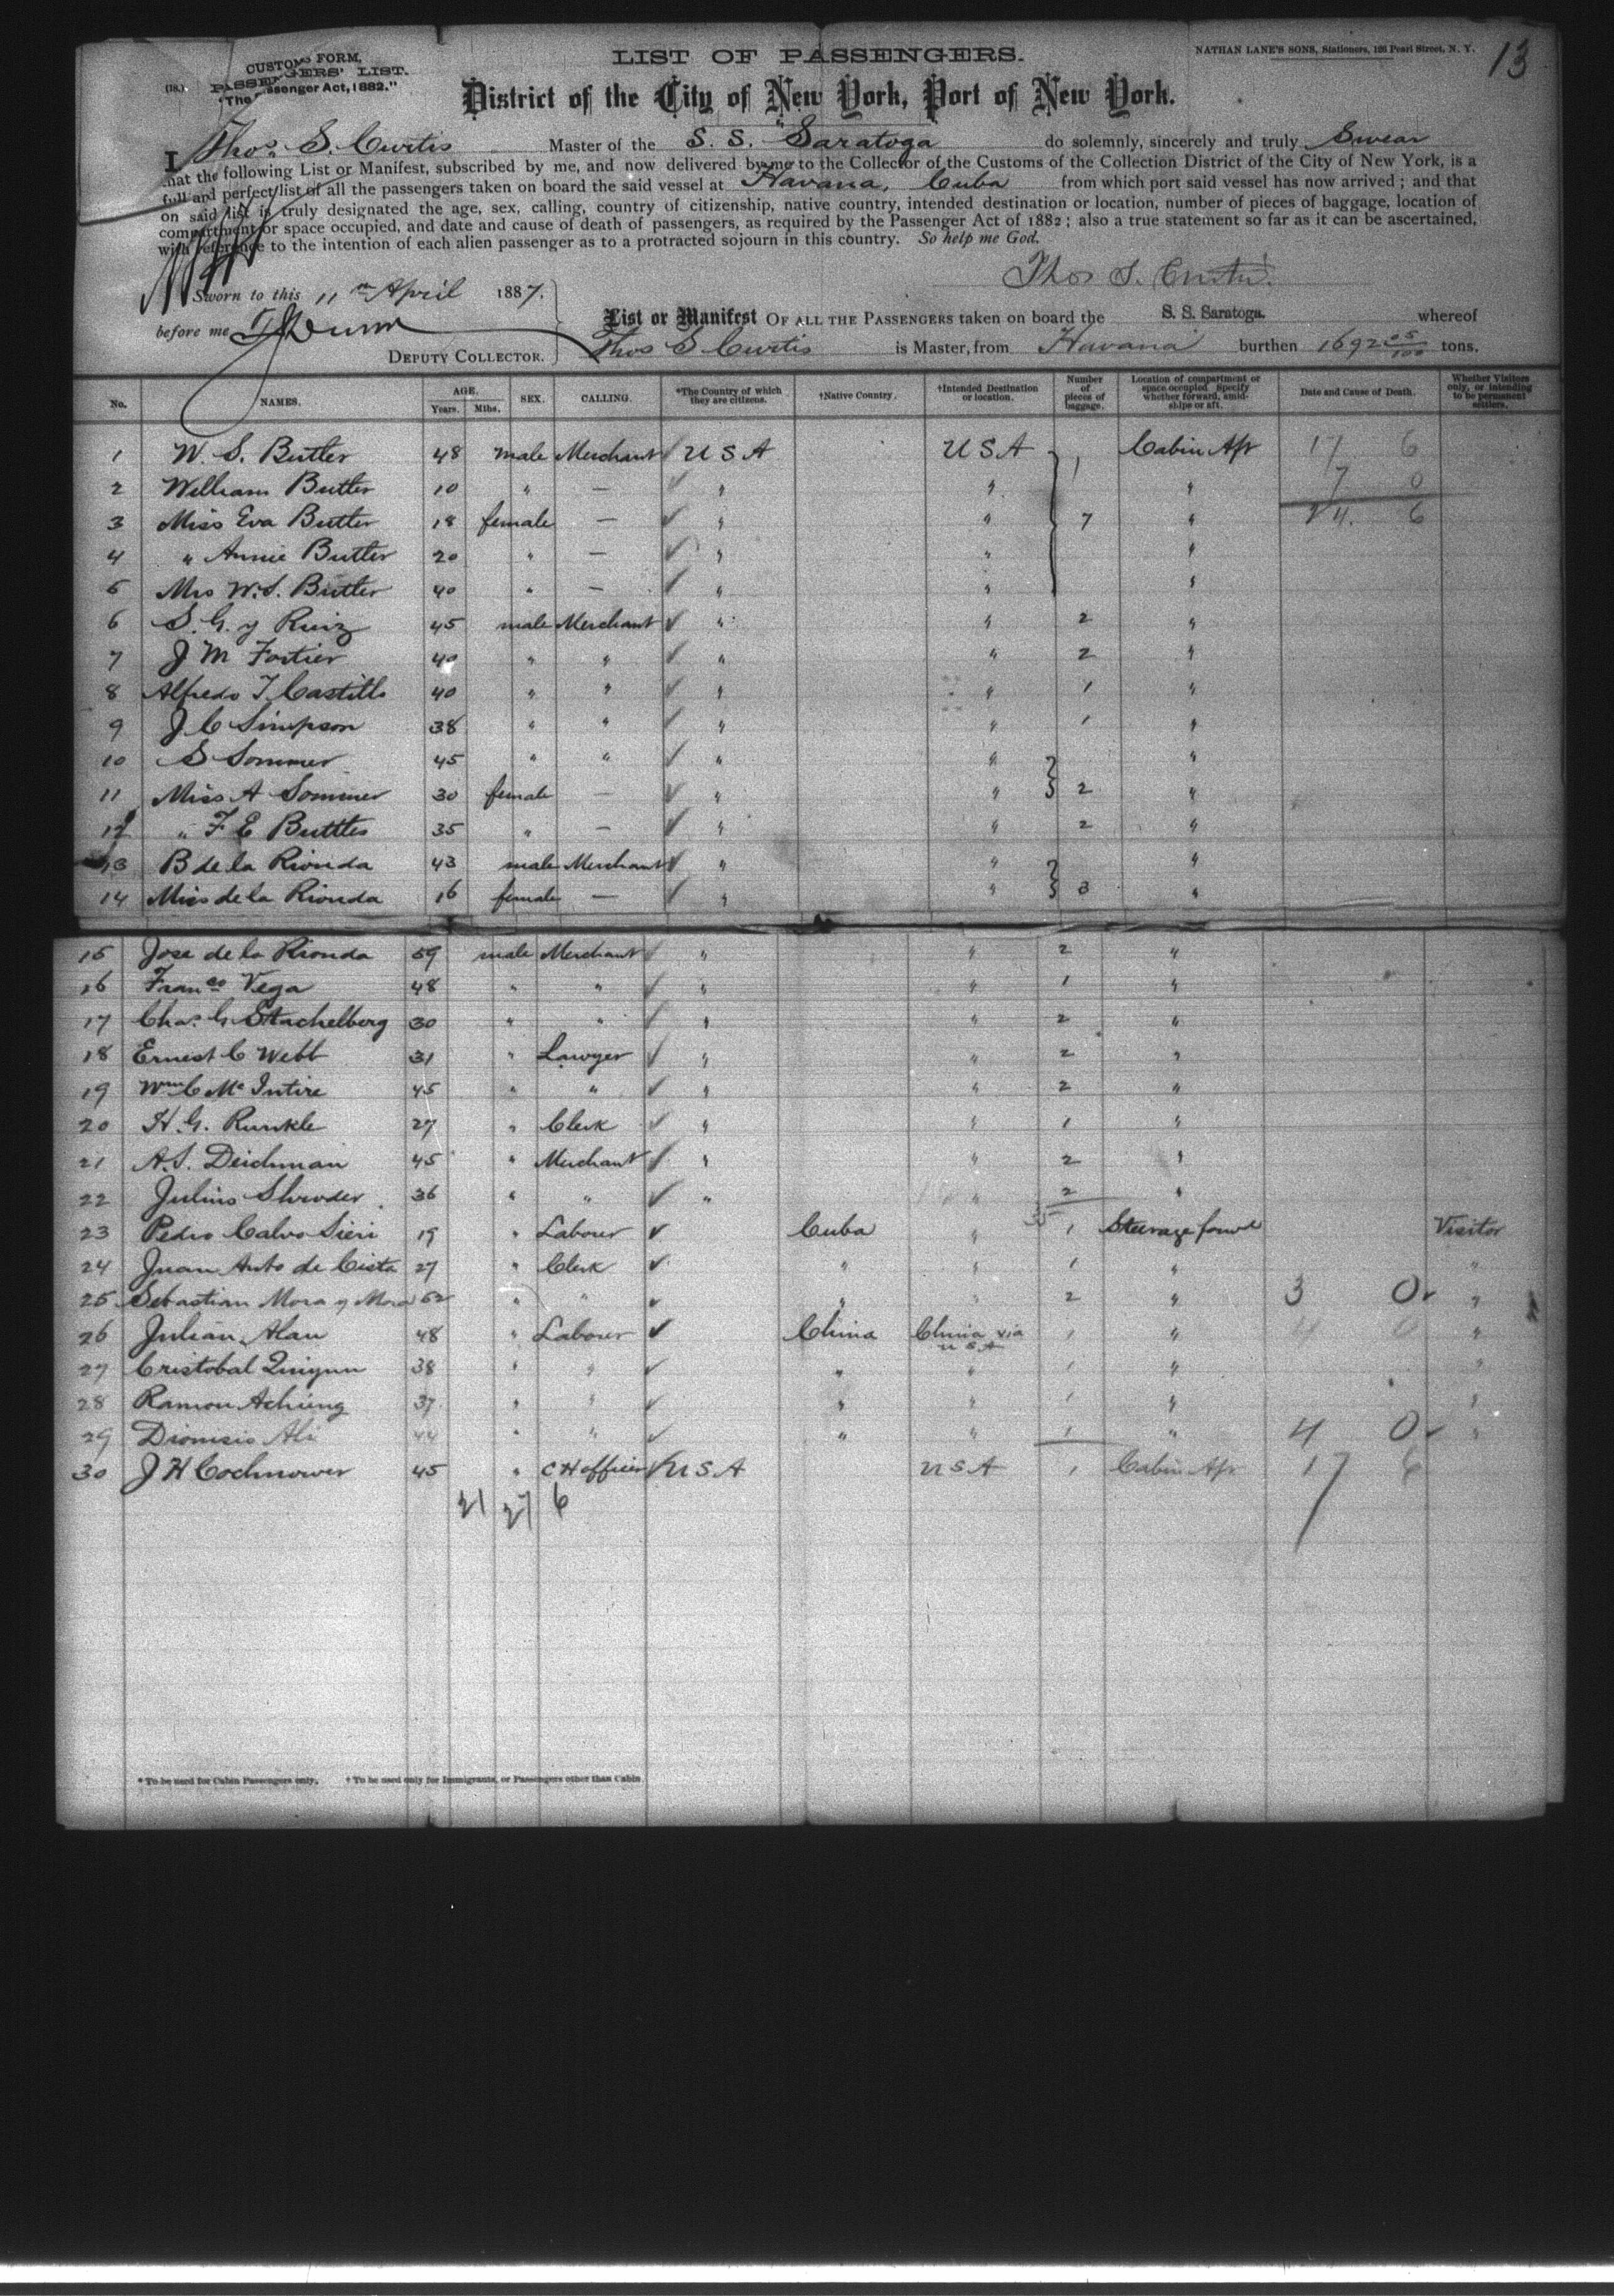 13
(18.)
CUSTOMS FORM,
PASSENGERS' LIST.
"The Passenger Act, 1882."
LIST OF PASSENGERS.
NATHAN LANE'S SONS, Stationers, 126 Pearl Street, N. Y.
District of the City of New York, Port of New York.
I Thos. S. Curtis Master of the S. S. "Saratoga do solemnly, sincerely and truly Swear
that the following List or Manifest, subscribed by me, and now delivered by me to the Collector of the Customs of the Collection District of the City of New York, is a
full and perfect list of all the passengers taken on board the said vessel at Havana, Cuba from which port said vessel has now arrived; and that
on said list is truly designated the age, sex, calling, country of citizenship, native country, intended destination or location, number of pieces of baggage, location of
compartment or space occupied, and date and cause of death of passengers, as required by the Passenger Act of 1882; also a true statement so far as it can be ascertained,
with reference to the intention of each alien passenger as to a protracted sojourn in this country. So help me God.
Thos S. Curtis
Sworn to this 11 April 1887.
before me
DEPUTY COLLECTOR.
List or Manifest OF ALL THE PASSENGERS taken on board the S. S. Saratoga. whereof
Thos S Curtis is Master, from Havana burthen 1692 05/100 tons.
No. NAMES. AGE. Years. Mths. SEX. CALLING. *The Country of which they are citizens. †Native Country. †Intended Destination or location. Number of pieces of baggage. Location of compartment or space occupied. Specify whether forward, amidships or aft. Date and Cause of Death. Whether Visitors only, or intending to be permanent settlers.
1 W. S. Butler 48 male Merchant ✓ U S A U S A 1 Cabin Aft 17 6
2 William Butler 10 " — ✓ " " " 7 0
3 Miss Eva Butler 18 female — ✓ " " 7 " 24. 6
4 " Annie Butler 20 " — ✓ " " "
5 Mrs W. S. Butler 40 " — ✓ " " "
6 S. G. y Ruiz 45 male Merchant ✓ " " 2 "
7 J M Fortier 40 " " ✓ " " 2 "
8 Alfredo T. Castillo 40 " " ✓ " " 1 "
9 J C Simpson 38 " " ✓ " " 1 "
10 S Sommer 45 " " ✓ " " "
11 Miss A Sommer 30 female — ✓ " " 2 "
12 " F. E Buttles 35 " — ✓ " " 2 "
13 B de la Rionda 43 male Merchant ✓ " " "
14 Miss de la Rionda 16 female — ✓ " " 3 "
15 Jose de la Rionda 59 male Merchant ✓ " " 2 "
16 Franco Vega 48 " " ✓ " " 1 "
17 Chas. G. Stachelberg 30 " " ✓ " " 2 "
18 Ernest C Webb 31 " Lawyer ✓ " " 2 "
19 Wm C Mc Intire 45 " " ✓ " " 2 "
20 H. G. Runkle 27 " Clerk ✓ " " 1 "
21 A. S. Deichman 45 " Merchant ✓ " " 2 "
22 Julius Shroder 36 " " ✓ " " 2 "
23 Pedro Calvo 19 " Labourer ✓ Cuba " 35 1 Steerage forwd Visitor
24 Juan Anto de Cista 27 " Clerk ✓ " " 1 " "
25 Sebastian Mora y Mora 52 " " ✓ " " 2 " 3 0 "
26 Julian Alan 48 " Labourer ✓ China China via U S A 1 " 4 0 "
27 Cristobal 38 " " ✓ " " 1 " "
28 Ramon Achung 37 " " ✓ " " 1 " "
29 Dionisio Ali 44 " " ✓ " " 1 " 4 0 "
30 J H Cochnower 45 " C H officer ✓ U S A U S A 1 Cabin Aft 17 6
21 27 6
* To be used for Cabin Passengers only. † To be used only for Immigrants, or Passengers other than Cabin.